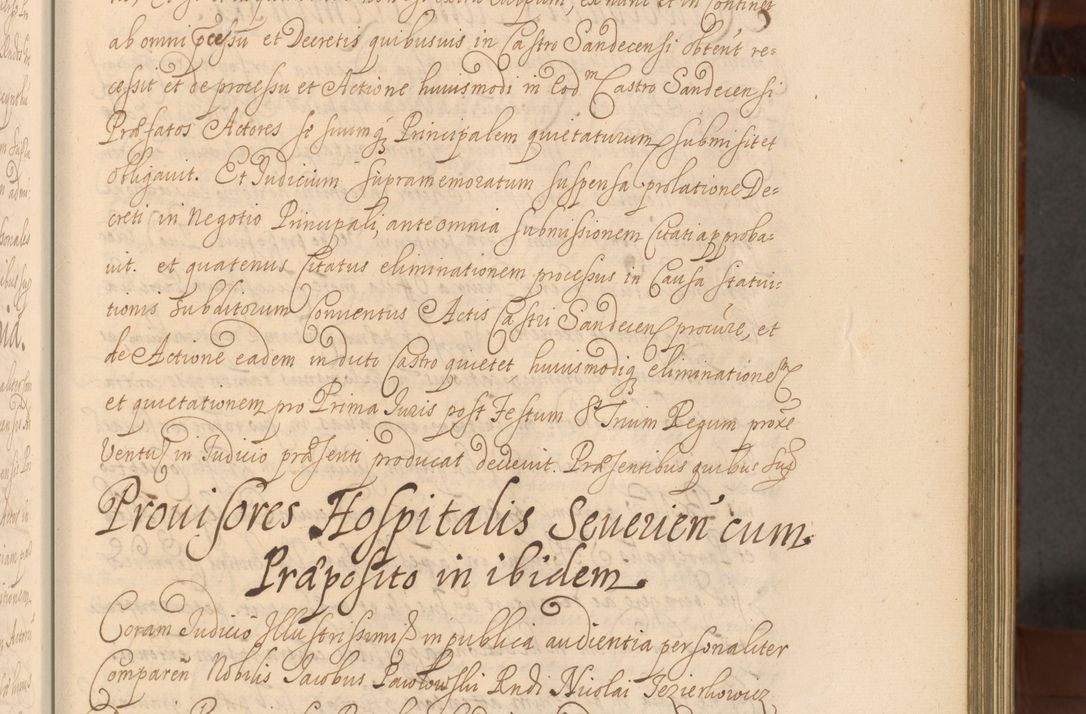 ab omni pcessu et Decretis quibusuis in Castro Sandecensi obtent re-
cessit et de processu et Actione huiusmodi in Eodm Castro Sandecensi
Præfatos Actores se suumq Principalem quietaturum submisit et
obligauit. Et Judicium supramemoratum suspensa prolatione De-
creti in Negotio Principali, ante omnia submissionem Citati approba-
uit. et quatenus Citatus eliminationem processus in Causa statui-
tionis Subditorum Conuentus Actis Castri Sandecen procuret, et
de Actione eadem in dicto Castro quietet huiusmodiq eliminationem
et quietationem pro Prima Juris post Festum S Trium Regum proxe
Ventur in Judicio præsenti producat decreuit. Præsentibus quibus sup
Prouisores Hospitalis Seuerien cum
Præposito in ibidem
Coram Judicio Illustrissimi in publica audientia personaliter
Comparen Nobilis Jacobus Pawłowski Rndi Nicolai Jezierkowicz